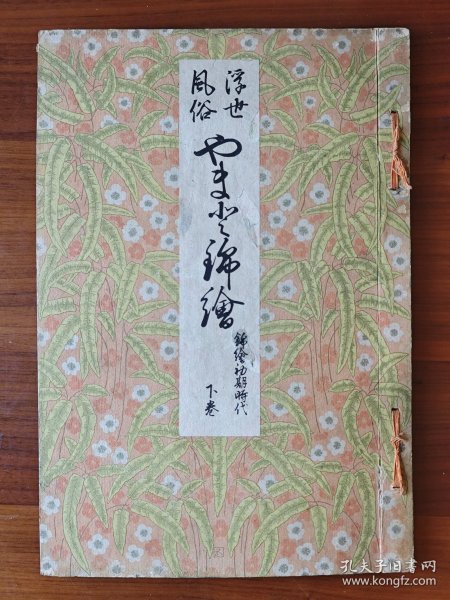 浮世
風俗
やまと錦繪
錦繪初期時代
下卷
孔夫子旧书网
www.kongfz.com